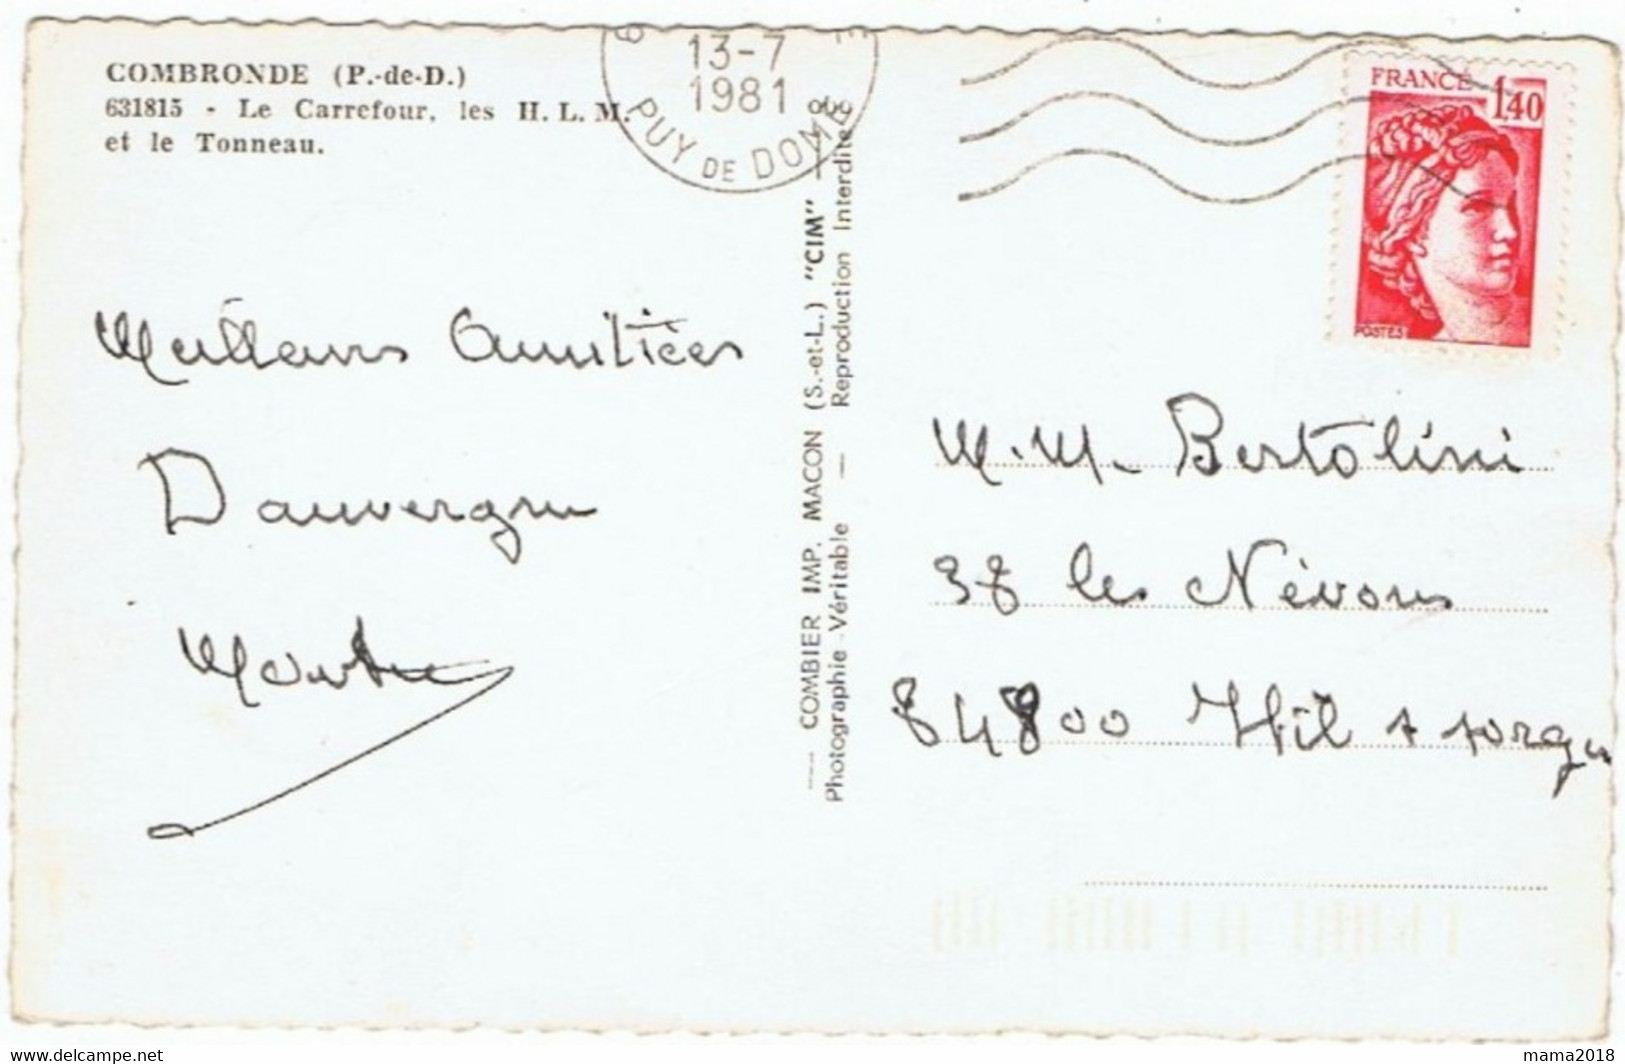 COMBRONDE (P.-de-D.)
631815 - Le Carrefour, les H.L.M.
et le Tonneau.
13-7
1981
PUY DE DOME
FRANCE
1,40
POSTES
Meilleurs Amitiées
Dauvergne
— COMBIER IMP. MACON (S.-et-L.) "CIM" —
Photographie Véritable — Reproduction Interdite
M. M. Bertolini
38 les Névons
84800 Hil s sorgue
mama2018